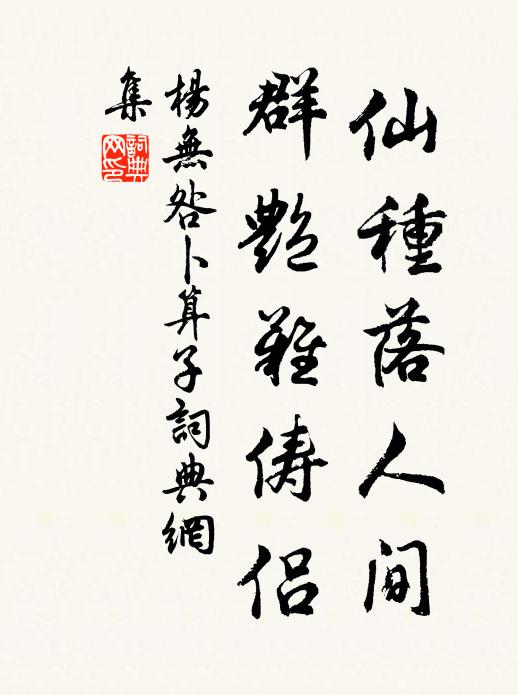 仙種落人間
群艷難儔侶
楊無咎卜算子詞典網
集
詞典网印